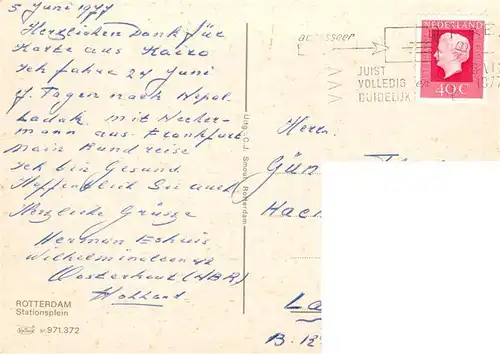 5 Juni 1977
Herzlichen Dank für
Karte aus Kairo
Ich fahre 24 Juni
Tagen nach Nepal
Ladak mit Necker-
mann aus Frankfurt
Main Rundreise
Ich bin Gesund.
Hoffendlich Sie auch.
Herzliche Grüsse
Herman Eshuis
Wilhelminalaan
Oosterhout (NBR)
Holland
ROTTERDAM
Stationsplein
No 971.372
Uitg. C.J. Smout, Rotterdam
adresseer
JUIST
VOLLEDIG en
DUIDELIJK
NEDERLAND
40 C
Herrn
Gün
Hac
La
B-12